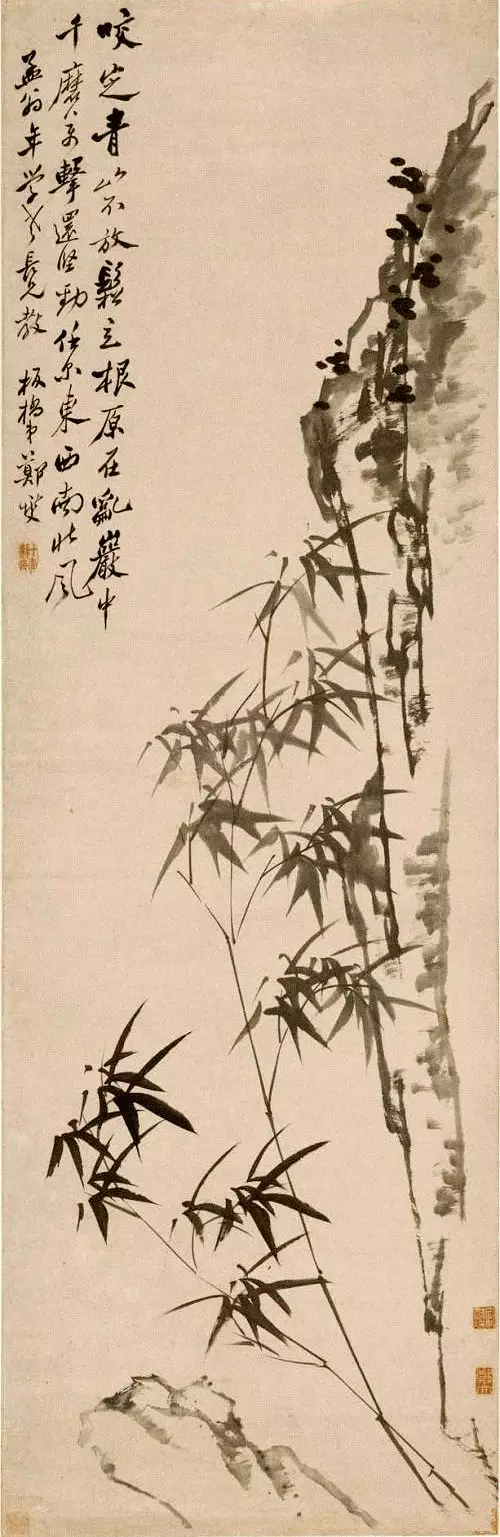 咬定青山不放鬆立根原在亂巖中
千磨万擊還坚勁任尔東西南北风
孟翁年学老長兄教 板橋弟鄭燮